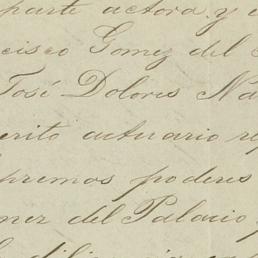 parte actora y e
cisco Gomez del
José Dolores Na
erito actuario re
premos poderes
ner del Palacio